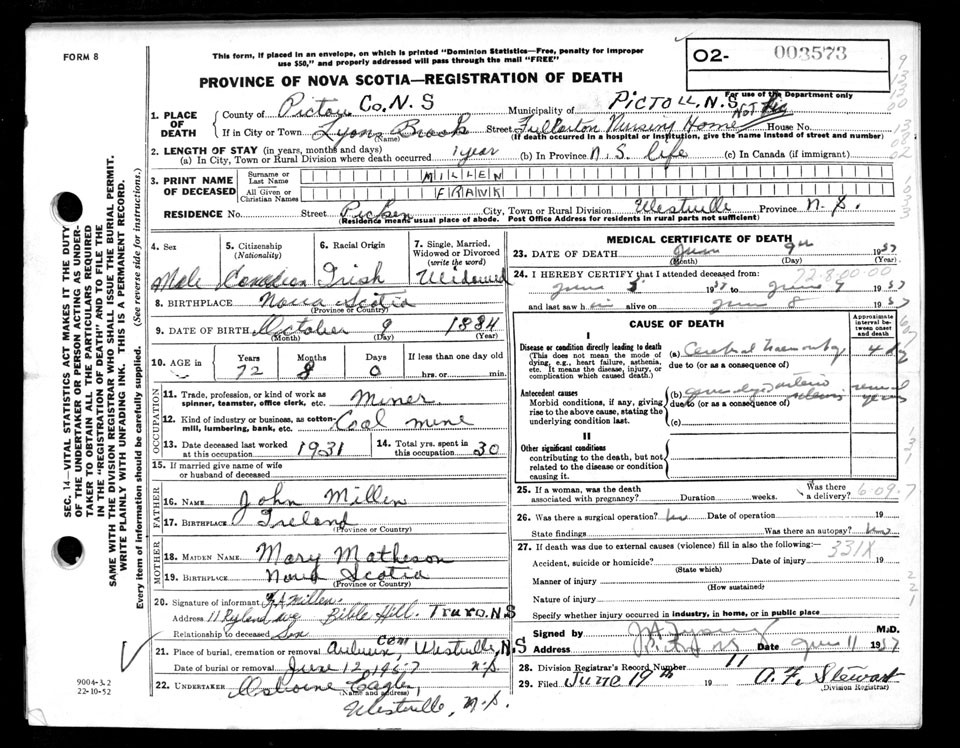 FORM 8
This form, if placed in an envelope, on which is printed "Dominion Statistics—Free, penalty for improper
use $50," and properly addressed will pass through the mail "FREE"
02-
003573
PROVINCE OF NOVA SCOTIA—REGISTRATION OF DEATH
For use of the Department only
1. PLACE OF DEATH
County of Pictou Co. N.S Municipality of PICTOU. N.S
If in City or Town Lyons Brook (Name) Street Fullarton Nursing Home House No.
(If death occurred in a hospital or institution, give the name instead of street and number)
2. LENGTH OF STAY (in years, months and days)
(a) In City, Town or Rural Division where death occurred 1 year (b) In Province N.S. life (c) In Canada (if immigrant)
3. PRINT NAME OF DECEASED
Surname or Last Name MILLEN
All Given or Christian Names FRANK
RESIDENCE No. Street Picken City, Town or Rural Division Westville Province N.S.
(Residence means usual place of abode. Post Office Address for residents in rural parts not sufficient)
4. Sex Male
5. Citizenship (Nationality) Canadian
6. Racial Origin Irish
7. Single, Married, Widowed or Divorced (write the word) Widowed
8. BIRTHPLACE Nova Scotia
(Province or Country)
9. DATE OF BIRTH October 9 1884
(Month) (Day) (Year)
10. AGE in Years 72 Months 8 Days 0 If less than one day old hrs. or min.
OCCUPATION
11. Trade, profession, or kind of work as spinner, teamster, office clerk, etc. Miner
12. Kind of industry or business, as cotton-mill, lumbering, bank, etc. Coal mine
13. Date deceased last worked at this occupation 1931
14. Total yrs. spent in this occupation 30
15. If married give name of wife or husband of deceased
FATHER
16. NAME John Millen
17. BIRTHPLACE Ireland
(Province or Country)
MOTHER
18. MAIDEN NAME Mary Matheson
19. BIRTHPLACE Nova Scotia
(Province or Country)
20. Signature of informant Millen.
Address 11 Ryland Ave Bible Hill. Truro. N.S
Relationship to deceased Son
21. Place of burial, cremation or removal Cem, Westville, N.S
Date of burial or removal June 12, 1957 N.S
22. UNDERTAKER Osborne Eagles,
(Name and address)
Westville, N.S.
MEDICAL CERTIFICATE OF DEATH
23. DATE OF DEATH June 9th 1957
(Month) (Day) (Year)
24. I HEREBY CERTIFY that I attended deceased from: 72-8-00-00
June 5 1957 to June 9 1957
and last saw him alive on June 8 1957
CAUSE OF DEATH
Approximate interval between onset and death
I
Disease or condition directly leading to death
(This does not mean the mode of dying, e.g., heart failure, asthenia, etc. It means the disease, injury, or complication which caused death.)
(a) Cerebral haemorrhage 4
due to (or as a consequence of)
Antecedent causes
Morbid conditions, if any, giving rise to the above cause, stating the underlying condition last.
(b) several years
due to (or as a consequence of)
(c)
II
Other significant conditions
contributing to the death, but not related to the disease or condition causing it.
25. If a woman, was the death associated with pregnancy? Duration weeks. Was there a delivery? 6-09.7
26. Was there a surgical operation? No Date of operation 19
State findings Was there an autopsy? No
27. If death was due to external causes (violence) fill in also the following:— 331X
Accident, suicide or homicide? Date of injury 19
(State which)
Manner of injury
(How sustained)
Nature of injury
Specify whether injury occurred in industry, in home, or in public place
Signed by M.D.
Address Date June 11 1957
28. Division Registrar's Record Number 11
29. Filed June 19th 19 A. F. Stewart
(Division Registrar)
SEC. 14—VITAL STATISTICS ACT MAKES IT THE DUTY
OF THE UNDERTAKER OR PERSON ACTING AS UNDER-
TAKER TO OBTAIN ALL THE PARTICULARS REQUIRED
IN THE "REGISTRATION OF DEATH" AND TO FILE THE
SAME WITH THE DIVISION REGISTRAR WHO SHALL ISSUE THE BURIAL PERMIT.
WRITE PLAINLY WITH UNFADING INK. THIS IS A PERMANENT RECORD.
Every item of information should be carefully supplied. (See reverse side for instructions.)
9004-3.2
22-10-52